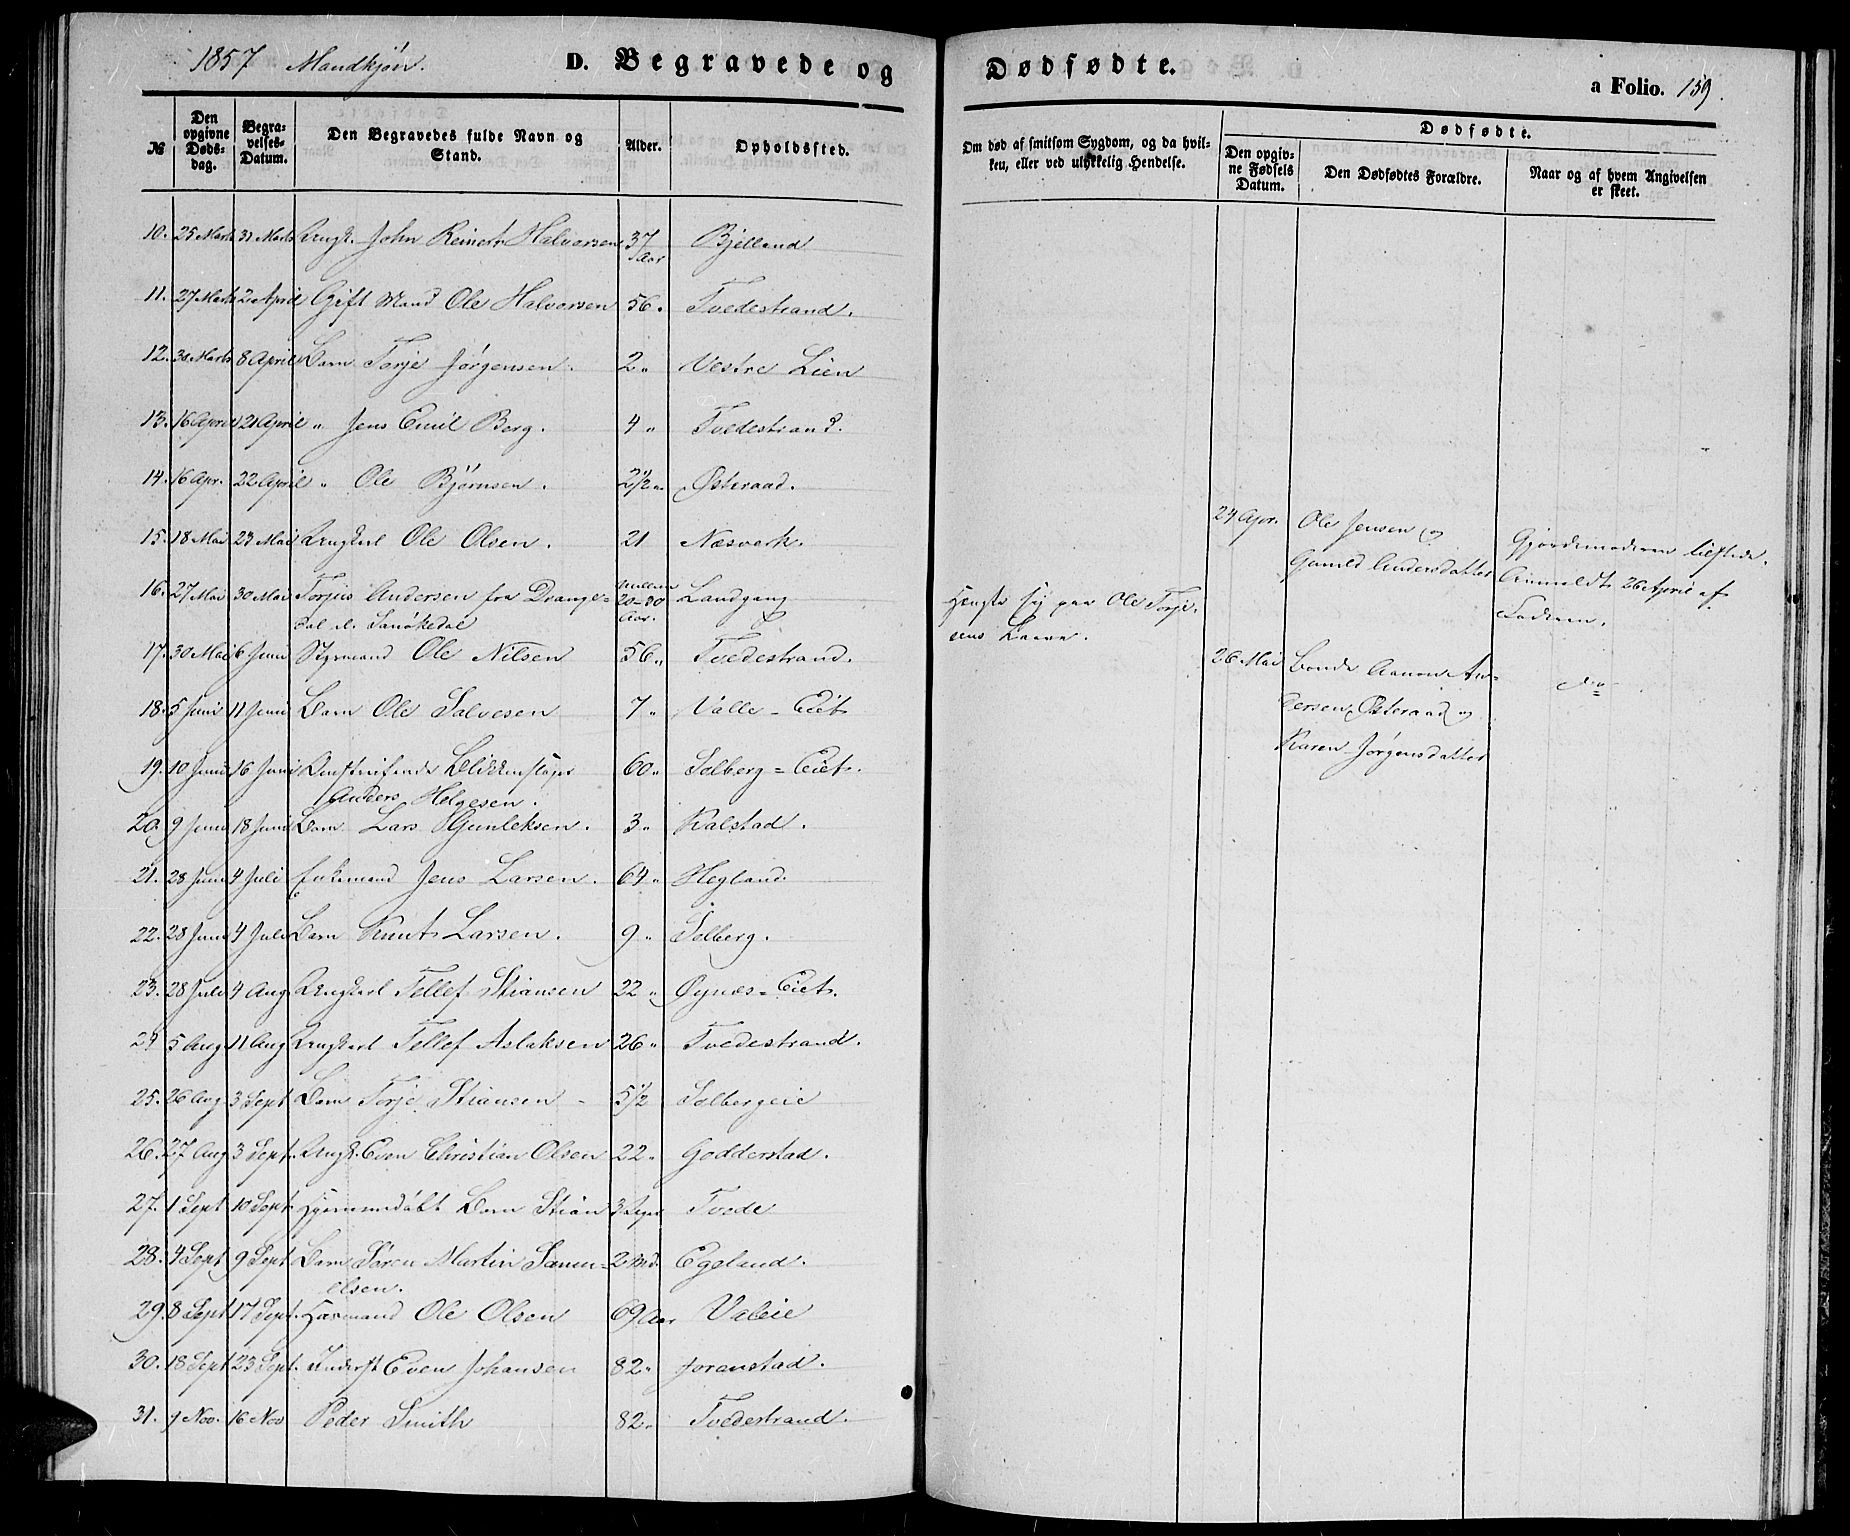 1857 Mandkjøn.
D. Begravede og Dødfødte.
a Folio. 159.
№
Den opgivne Døds-dag.
Begra-velses-Datum.
Den Begravedes fulde Navn og Stand.
Alder.
Opholdssted.
Om død af smitsom Sygdom, og da hvil-
ken, eller ved ulykkelig Hendelse.
Dødfødte.
Den opgiv-ne Fødsels Datum.
Den Dødfødtes Forældre.
Naar og af hvem Angivelsen er skeet.
10. 25 Marts 31 Marts Ungk. John Reinert Halvorsen 37 Aar Bjelland
11. 27 Marts 2 April Gift Mand Ole Halvorsen 56. Tvedestrand.
12. 30 Marts 8 April Barn Torje Jørgensen. 2 " Vestre Lien
13. 16 April 21 April " Jens Emil Berg. 4 " Tvedestrand.
14. 16 Apr. 22 April " Ole Bjørnsen. 2½ " Østeraad.
15. 18 Mai 23 Mai Ungkarl Ole Olsen. 21 Næsverk.
16. 27 Mai 30 Mai Torjus Andersen fra Drange- mellem 20-30 Aar. Landgang
dal el. Sanøkedal
Hengte sig paa Ole Torje-
sens Laave.
17. 30 Mai 6 Juni Styrmand Ole Nilsen 56 " Tvedestrand.
18. 5 Juni 11 Juni Barn Ole Salvesen 7 " Valle-Eiet
19. 10 Juni 16 Juni Omstreifende Blikkenslager 60 " Solberg=Eiet.
Anders Helgesen.
20. 9 Juni 18 Juni Barn Lars Gunleksen. 3 " Kalstad.
21. 28 Juni 4 Juli Enkemand Jens Larsen. 64 " Hegland.
22. 28 Juni 4 Juli Barn Knut Larsen. 9 " Solberg.
23. 28 Juli 4 Aug. Ungkarl Tellef Stiansen 22 " Øynes=Eiet.
24 5 Aug 11 Aug Ungkarl Tellef Aslaksen 26 " Tvedestrand.
25. 26 Aug 3 Sept Barn Torje Stiansen 5½ Solbergeie
26. 27 Aug 3 Sept. Ungk. Even Christian Olsen 22 " Godderstad.
27. 1 Sept 10 Sept. Hjemmedøbt Barn Stian 3 Tvede
28. 4 Sept 9 Sept Barn Søren Martin Samu- 2 Md. Egeland.
elsen.
29. 8 Sept 17 Sept. Ole Olsen 69 Aar Valeie
30. 18 Sept 23 Sept. Inderst Even Johansen 82 " Joranstad.
31. 7 Nov. 16 Nov Peder Smith 82 " Tvedestrand.
24 Apr. Ole Jensen og
Gunild Andersdatter
Gjordemoderen
Anmeldt 26 April af
Faderen.
26 Mai Bonde Aanon An-
dersen Østeraad og
Karen Jørgensdatter
do